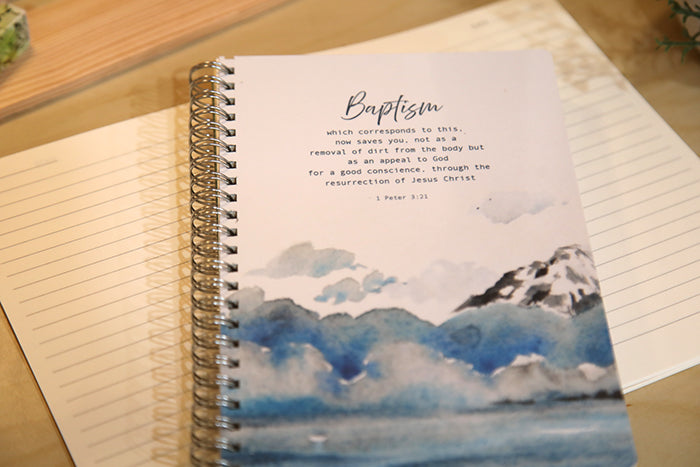 Baptism
which corresponds to this,
now saves you, not as a
removal of dirt from the body but
as an appeal to God
for a good conscience, through the
resurrection of Jesus Christ
1 Peter 3:21